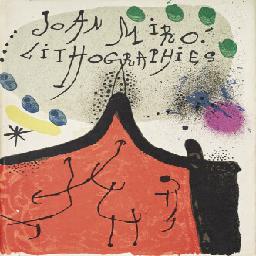 JOAN MIRO.
LITHOGRAPHIES